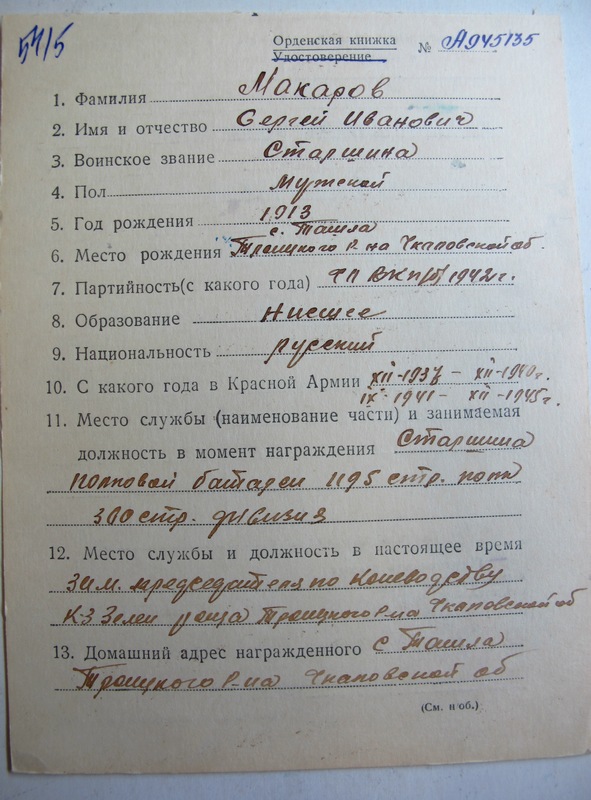 54/5
Орденская книжка
Удостоверение № А945135
1. Фамилия Макаров
2. Имя и отчество Сергей Иванович
3. Воинское звание Старшина
4. Пол Мужской
5. Год рождения 1913
с. Ташла
6. Место рождения Троицкого р-на Чкаловской об.
7. Партийность(с какого года) ЧЛ ВКП(б) 1942 г.
8. Образование Низшее
9. Национальность русский
10. С какого года в Красной Армии XII-1937 - XII-1940г.
IX-1941 - XII-1945г.
11. Место службы (наименование части) и занимаемая
должность в момент награждения Старшина
полковой батареи 1195 стр. полк
360 стр. дивизия
12. Место службы и должность в настоящее время
Зам. председателя по коневодству
К-З Зелен роща Троицкого р-на Чкаловской об
13. Домашний адрес награжденного с Ташла
Троицкого р-на Чкаловской об
(См. н об.)